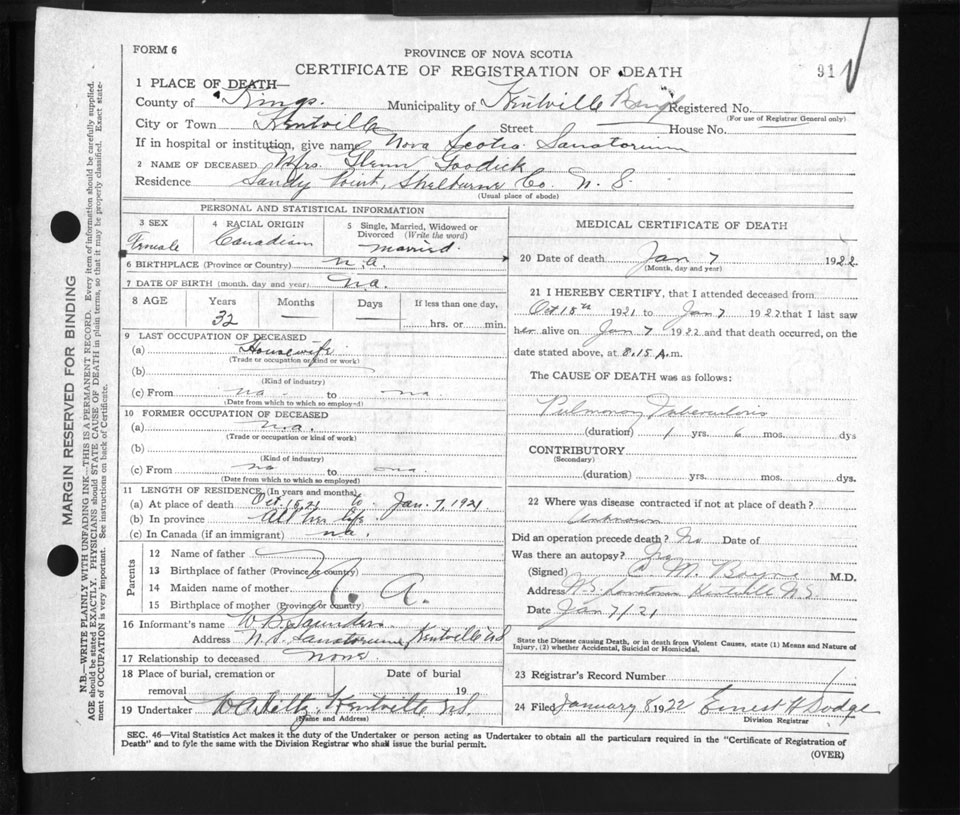 FORM 6
PROVINCE OF NOVA SCOTIA
CERTIFICATE OF REGISTRATION OF DEATH
91
1 PLACE OF DEATH—
County of Kings. Municipality of Kentville Registered No.
(For use of Registrar General only)
City or Town Kentville Street House No.
If in hospital or institution, give name Nova Scotia Sanatorium
2 NAME OF DECEASED Mrs. Glenn Goodick
Residence Sandy Point, Shelburne Co. N. S.
(Usual place of abode)
PERSONAL AND STATISTICAL INFORMATION
3 SEX Female
4 RACIAL ORIGIN Canadian
5 Single, Married, Widowed or Divorced (Write the word) Married.
6 BIRTHPLACE (Province or Country) n.a.
7 DATE OF BIRTH (month, day and year) n.a.
8 AGE Years Months Days If less than one day,
32 — — hrs. or min.
9 LAST OCCUPATION OF DECEASED
(a) Housewife
(Trade or occupation or kind of work)
(b)
(Kind of industry)
(c) From na to na
(Date from which to which so employed)
10 FORMER OCCUPATION OF DECEASED
(a) n.a.
(Trade or occupation or kind of work)
(b)
(Kind of industry)
(c) From na to na
(Date from which to which so employed)
11 LENGTH OF RESIDENCE (In years and months)
(a) At place of death Oct 15, 21 to Jan. 7, 1921
(b) In province All her life
(c) In Canada (if an immigrant) na.
Parents
12 Name of father
13 Birthplace of father (Province or country)
14 Maiden name of mother
15 Birthplace of mother (Province or country)
n. a.
16 Informant's name W B Saunders
Address N.S. Sanatorium Kentville NS
17 Relationship to deceased none
18 Place of burial, cremation or removal
Date of burial 19
19 Undertaker Kentville N.S.
(Name and Address)
MEDICAL CERTIFICATE OF DEATH
20 Date of death Jan 7 1922
(Month, day and year)
21 I HEREBY CERTIFY, that I attended deceased from
Oct 15th 1921 to Jan 7 1922 that I last saw
her alive on Jan 7 1922 and that death occurred, on the
date stated above, at 8.15 A.m.
The CAUSE OF DEATH was as follows:
Pulmonary Tuberculosis
(duration) 1 yrs. 6 mos. dys
CONTRIBUTORY
(Secondary)
(duration) yrs. mos. dys.
22 Where was disease contracted if not at place of death?
Unknown
Did an operation precede death? No Date of
Was there an autopsy? No
(Signed) M. M.D.
Address N.S. Sanatorium Kentville N.S.
Date Jan 7/21
State the Disease causing Death, or in death from Violent Causes, state (1) Means and Nature of
Injury, (2) whether Accidental, Suicidal or Homicidal.
23 Registrar's Record Number 1
24 Filed January 8 1922 Ernest H Dodge
Division Registrar
SEC. 46—Vital Statistics Act makes it the duty of the Undertaker or person acting as Undertaker to obtain all the particulars required in the "Certificate of Registration of
Death" and to fyle the same with the Division Registrar who shall issue the burial permit.
(OVER)
MARGIN RESERVED FOR BINDING
N.B.—WRITE PLAINLY WITH UNFADING INK—THIS IS A PERMANENT RECORD. Every item of information should be carefully supplied.
AGE should be stated EXACTLY. PHYSICIANS should STATE CAUSE OF DEATH in plain terms, so that it may be properly classified. Exact state-
ment of OCCUPATION is very important. See instructions on back of Certificate.